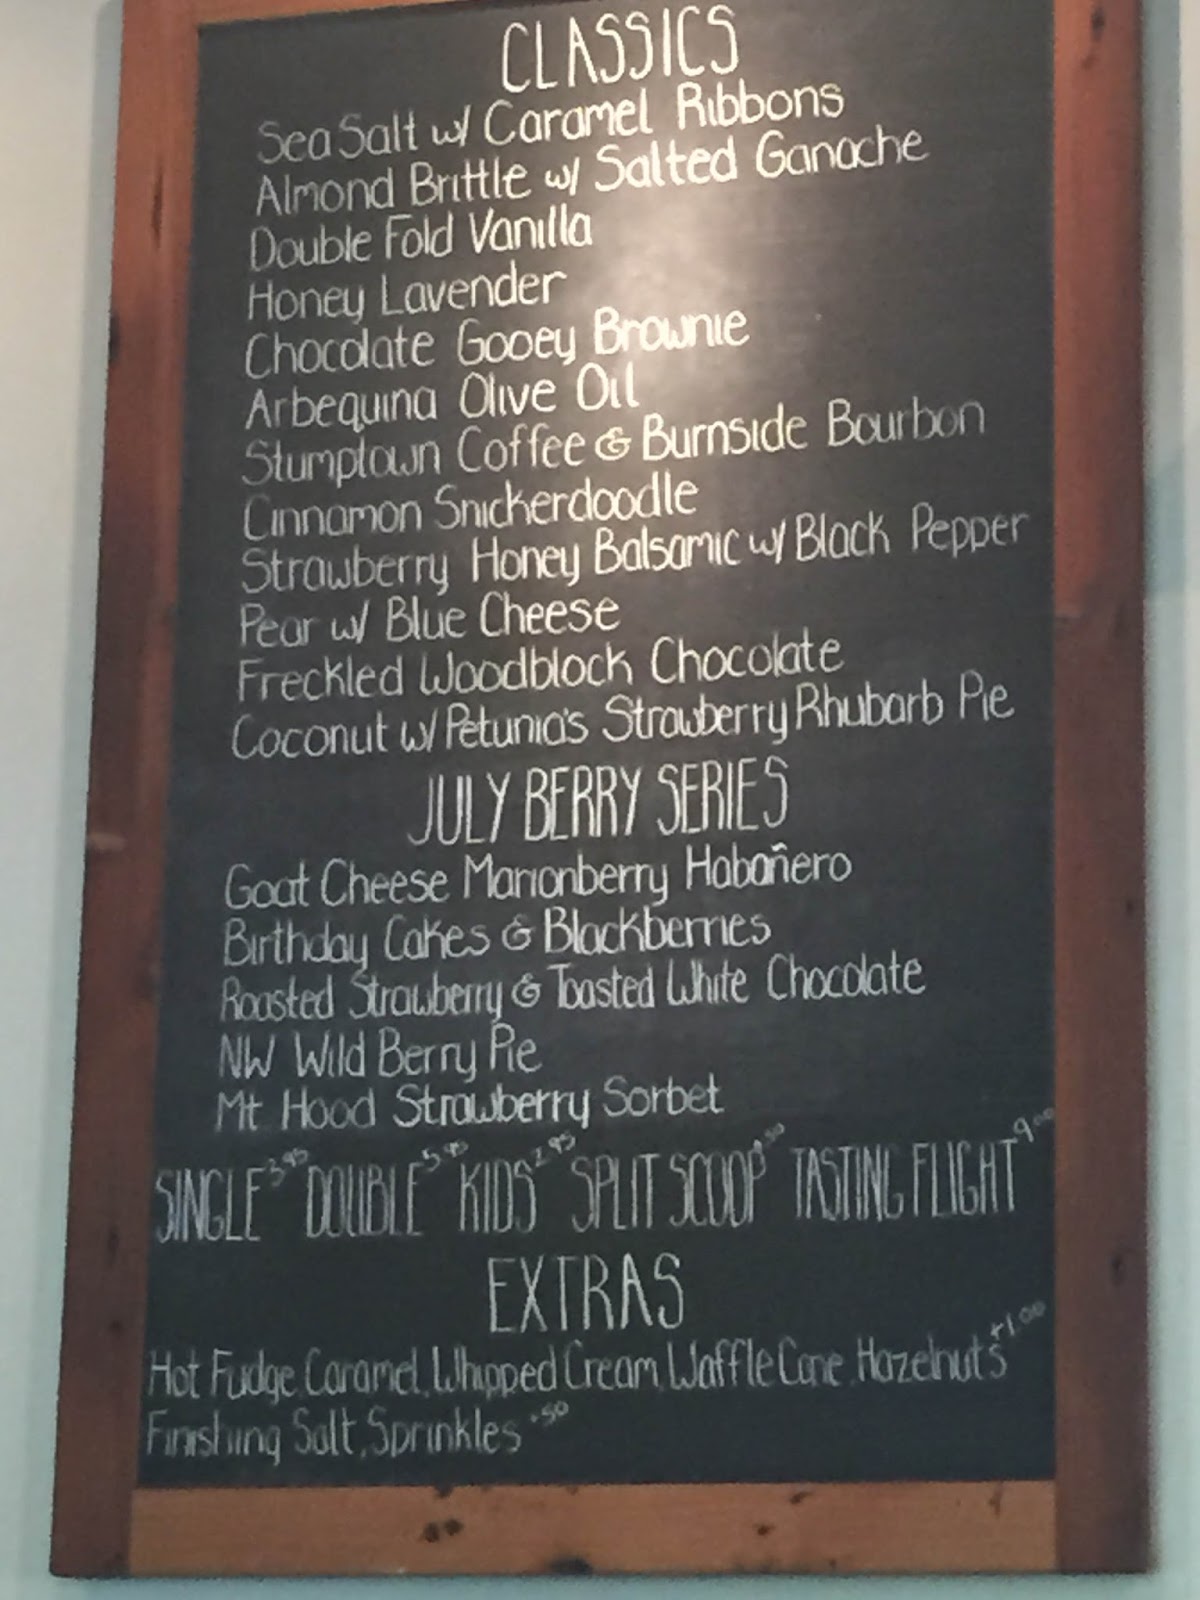 CLASSICS
Sea Salt w/ Caramel Ribbons
Almond Brittle w/ Salted Ganache
Double Fold Vanilla
Honey Lavender
Chocolate Gooey Brownie
Arbequina Olive Oil
Stumptown Coffee & Burnside Bourbon
Cinnamon Snickerdoodle
Strawberry Honey Balsamic w/ Black Pepper
Pear w/ Blue Cheese
Freckled Woodblock Chocolate
Coconut w/ Petunia's Strawberry Rhubarb Pie
JULY BERRY SERIES
Goat Cheese Marionberry Habañero
Birthday Cakes & Blackberries
Roasted Strawberry & Toasted White Chocolate
NW Wild Berry Pie
Mt Hood Strawberry Sorbet
SINGLE 3.95 DOUBLE 5.95 KIDS 2.95 SPLIT SCOOP TASTING FLIGHT 9.00
EXTRAS
Hot Fudge, Caramel, Whipped Cream, Waffle Cone, Hazelnuts +1.00
Finishing Salt, Sprinkles .50